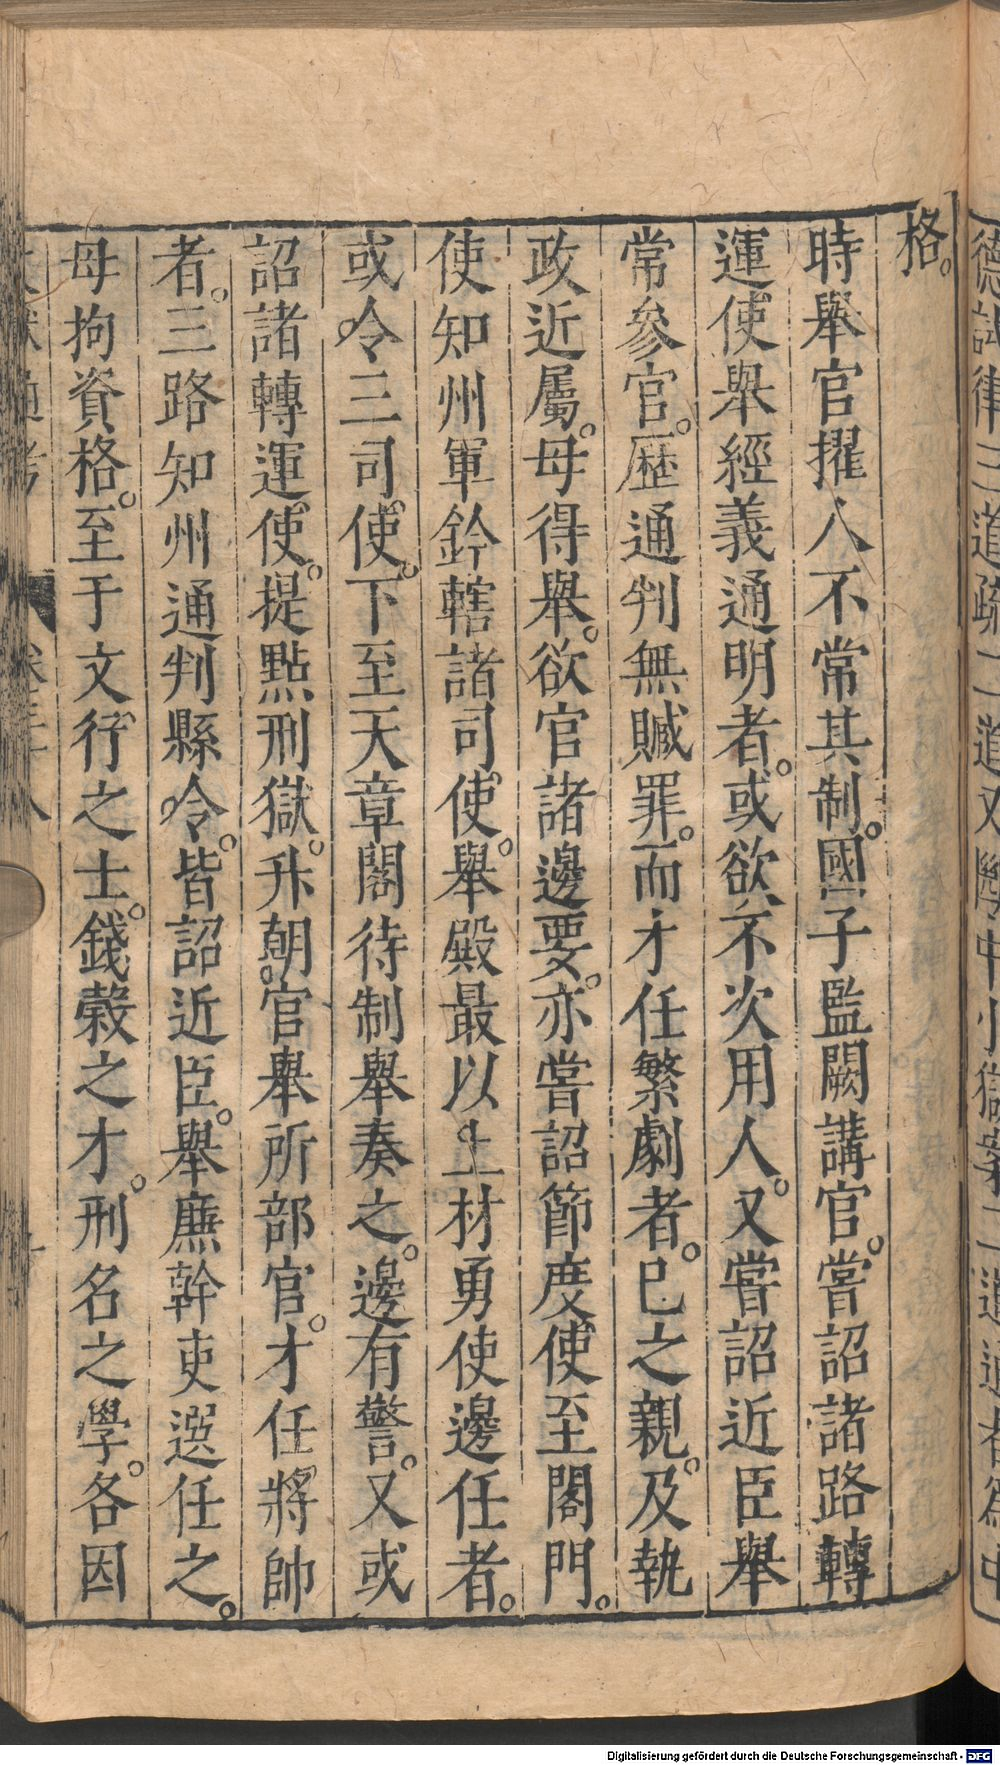 格。
時舉官擢人不常其制。國子監闕講官。嘗詔諸路轉
運使舉經義通明者。或欲不次用人。又嘗詔近臣舉
常參官。歷通判無贓罪。而才任繁劇者。已之親。及執
政近屬。毋得舉。欲官諸邊要。亦嘗詔節度使至閤門。
使知州軍鈐轄諸司使。舉殿最以上材勇使邊任者。
或令三司使。下至天章閣待制舉奏之。邊有警。又或
詔諸轉運使。提點刑獄。升朝。官舉所部官。才任將帥
者。三路知州通判縣令。皆詔近臣。舉廉幹吏選任之。
毋拘資格。至于文行之士。錢穀之才。刑名之學。各因
Digitalisierung gefördert durch die Deutsche Forschungsgemeinschaft - DFG